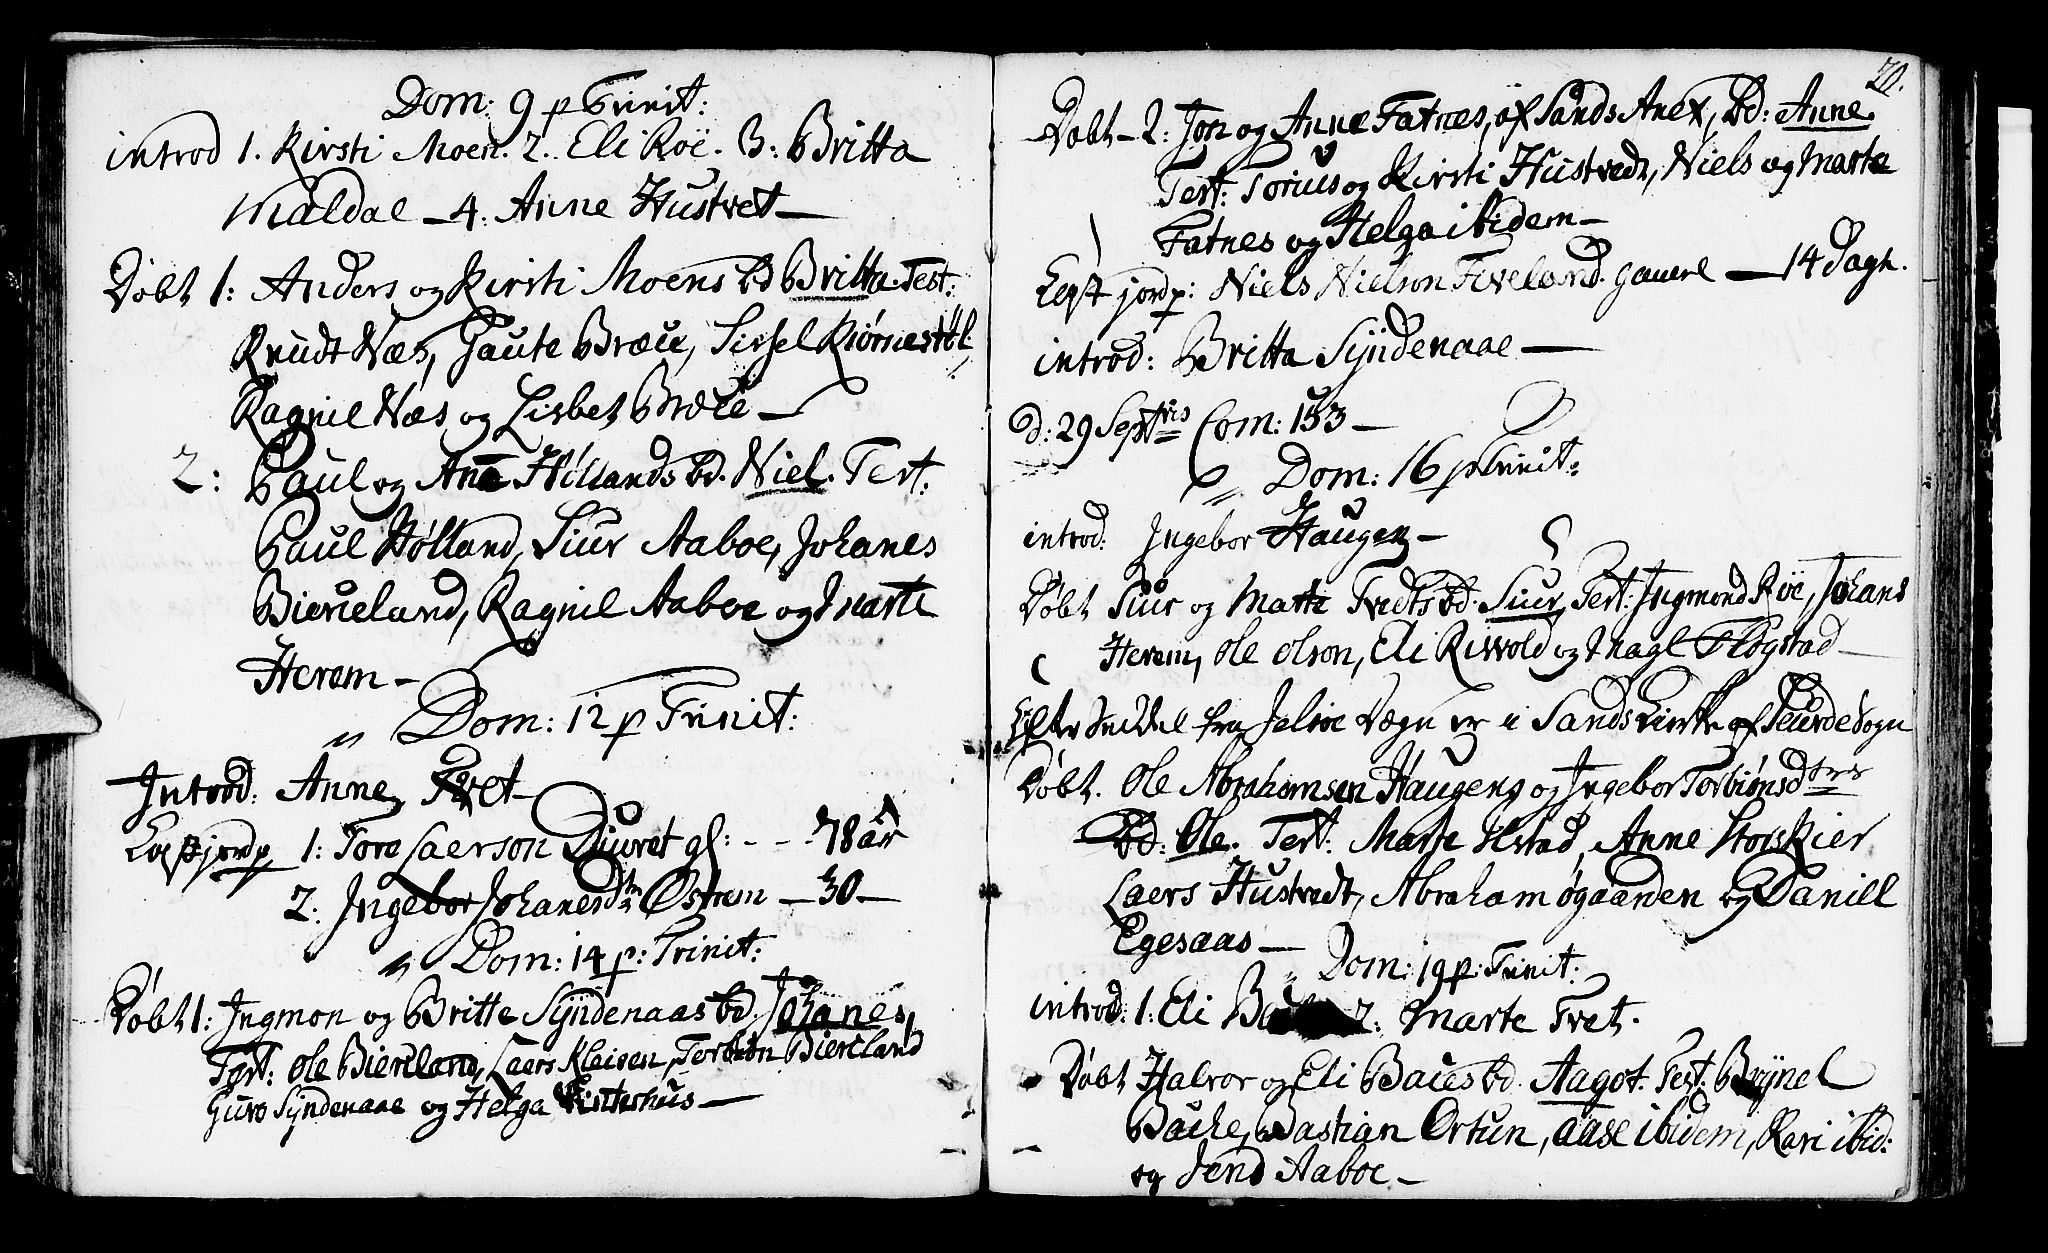 Dom: 9 p Trinit:
introd 1. Kirsti Moen. 2. Eli Roe. 3: Britta
Maldal - 4: Anne Hustvet -
Døbt 1: Anders og Kirsti Moens bd Britta. Test:
Knudt Næs, Gaute Bræue, Sissel
Ragnil Næs og Lisbet Bræue -
2: Paul og Ane Høllands bd. Niel. Test:
Paul Hølland, Siur Aaboe, Johanes
Bierieland, Ragnil Aaboe og Marte
Herem -
Dom: 12 p Trinit:
Introd: Anne Tvet -
1: Tore Laerson gl: - - - 78 år
2: Ingebor Johanesdtr Østrem - 30 -
Dom: 14 p: Trinit:
Døbt 1: Ingmon og Britte Syndenaas bd. Johanes,
Test: Ole Biereland, Laers Kleisen, Torbiøn Biereland
Guro Syndenaae og Helga
20.
Døbt - 2: Jon og Anne Fatnes, af Sands Anex, bd: Anne.
Test: Torius og Kirsti Hustvedt, Niels og Marte
Fatnes og Helga ibidem -
jordp: Niels Nielson Tveland. - 14 Dage.
introd: Britta Syndenaae -
d: 29 Septris Com: 153 -
Dom: 16 p Trinit:
introd: Ingebor Haugen -
Døbt Siur og Marte Tvedts bd. Siur, Test: Ingmond Roe, Johans
Herem, Ole Olson, Eli Risvold og Magl Fløgstad -
Efter Seddel fra Jelsøe er i Sands Kirke af Sogn
Døbt. Ole Abrahamsen Haugens og Ingebor Torbiønsdtrs
bd: Ole. Test: Marte Ilstad, Anne Storskier
Laers Hustvedt, Abraham Øgaarden og Daniel
Egesaas -
Dom: 19 p: Trinit:
introd: 1: Eli 2: Marte Tvet.
Døbt Halvor og Eli Baues bd. Aagot. Test: Brynel
Baue, Bastian Ørtun, Aase ibidem, Kari ibid:
og Aaboe -